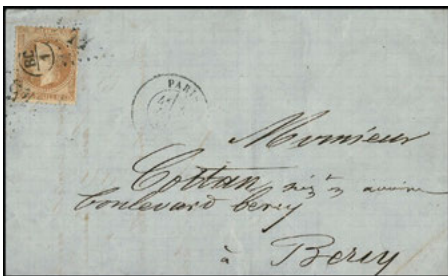 BC
1
PARIS
Monsieur
Cottan
boulevard bercy
à Bercy